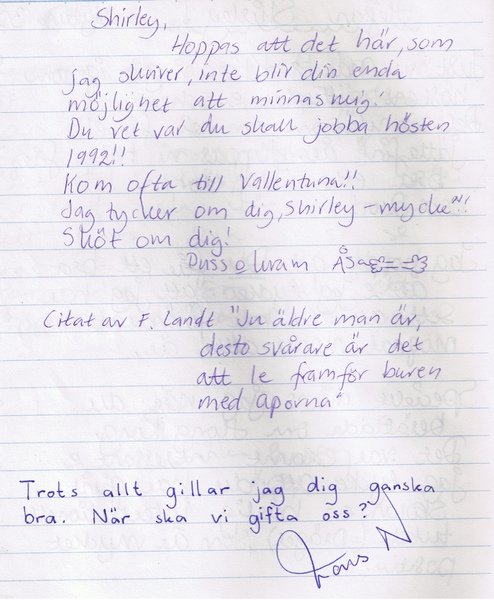 Shirley,
Hoppas att det här, som
jag skriver, inte blir din enda
möjlighet att minnas mig!
Du vet var du skall jobba hösten
1992!!
Kom ofta till Vallentuna!!
Jag tycker om dig, Shirley - mycke"!!
Sköt om dig!
Puss o kram Åsa
Citat av F. Landt "Ju äldre man är,
desto svårare är det
att le framför buren
med aporna"
Trots allt gillar jag dig ganska
bra. När ska vi gifta oss?
N